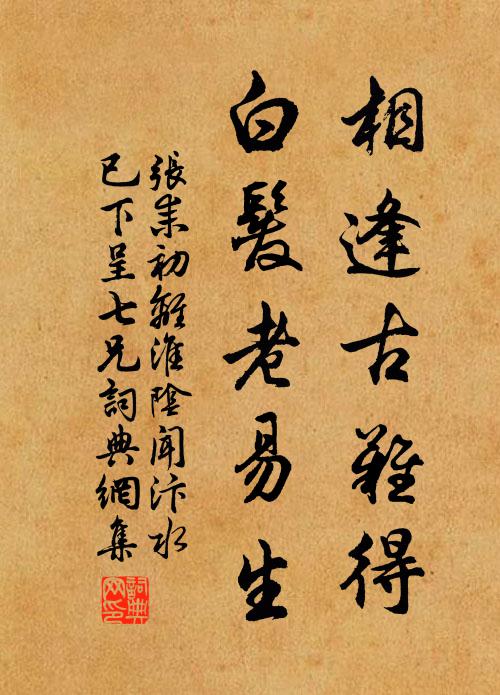 相逢古難得
白髮老易生
張耒初離淮陰聞汴水
已下呈七兄詞典網集
詞典
网印